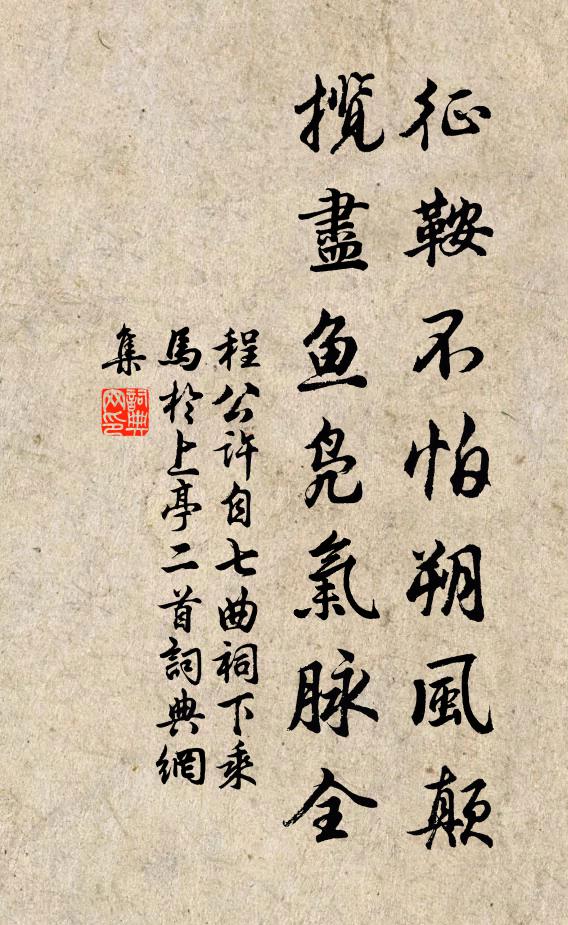 征鞍不怕朔風顛
攬盡魚鳧氣脉全
程公許自七曲祠下乘
馬於上亭二首詞典網
集
詞典
网印